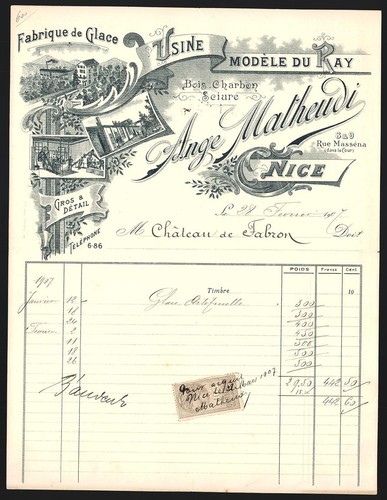 Fabrique de Glace
USINE
MODÈLE DU RAY
Bois, Charbon
Sciure
Ange Matheudi
8 & 9
Rue Masséna
(dans la Cour)
NICE
GROS &
DÉTAIL
TÉLÉPHONE
6-86
Le 28 Février 1907
M Château de Fabron Doit
POIDS Francs Cent.
1907 Timbre 10
Janvier 12 Glace Artificielle 500
18 500
24 400
Février 2 450
11 500
18 500
26 500
2950 442 50
442 60
Pour acquit
Nice le Mars 1907
Matheudi